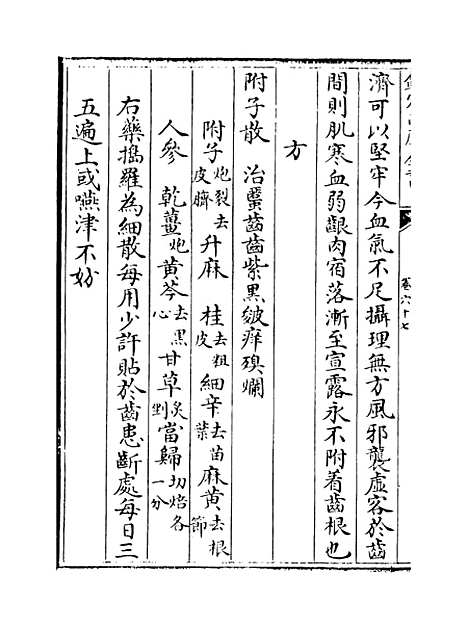 欽定四庫全書
卷六十七
濟可以堅牢今血氣不足攝理無方風邪襲虛客於齒
間則肌寒血弱齦肉宿落漸至宣露永不附着齒根也
方
附子散 治䘌齒齒紫黑皴痒㱥爛
附子炮裂去皮臍 升麻 桂去粗皮 細辛去苗葉 麻黄去根節
人參 乾薑炮 黄芩去黑心 甘草炙剉 當歸切焙各一分
右藥搗羅為細散每用少許貼於齒患齗處每日三
五遍上或嚥津不妨